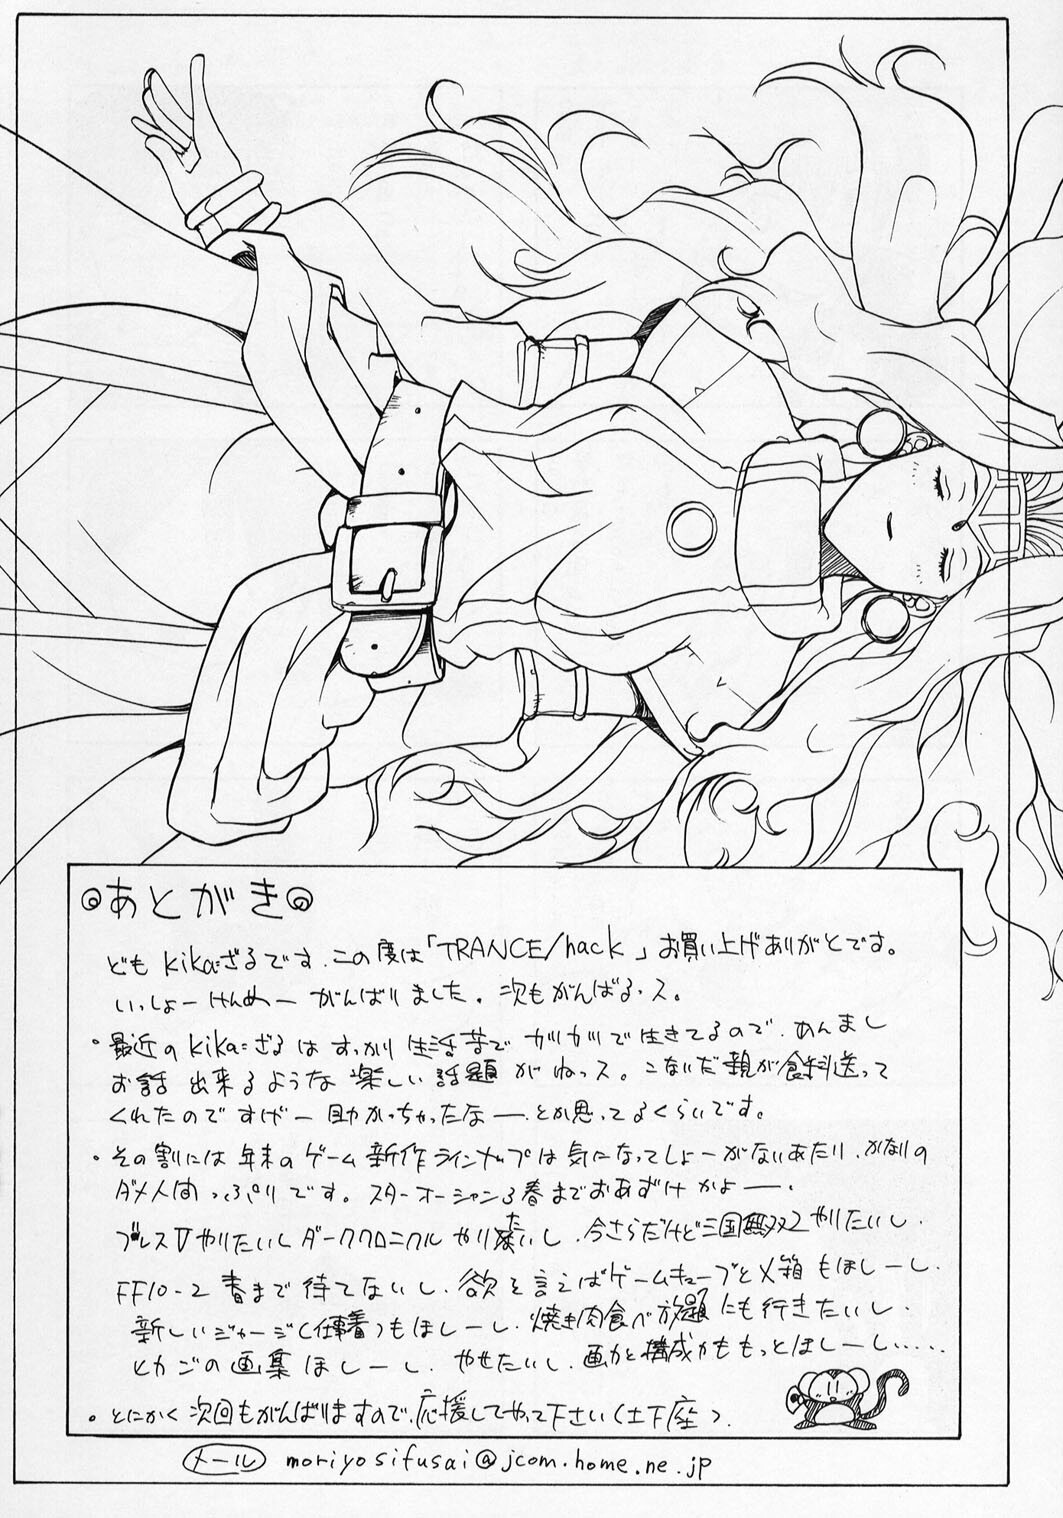 あとがき
どもkika=ざるです。この度は「TRANCE/hack」お買い上げありがとです。
いっしょーけんめーがんばりました。次もがんばるっス。
・最近のkika=ざるはすっかり生活苦でガリガリで生きてるので、あんまし
お話出来るような楽しい話題がねっス。こないだ親が食料送って
くれたのですげー助かっちゃったなー、とか思ってるくらいです。
・その割には年末のゲーム新作ラインナップは気になってしょーがないあたり、かなりの
ダメ人間っぷりです。スターオーシャン3春までおあずけかよー、
ブレスⅤやりたいしダーククロニクルやりたいし、今さらだけど三国無双2やりたいし、
FF10-2春まで待てないし、欲を言えばゲームキューブと×箱もほしーし、
新しいジャージ(仕事着)もほしーし、焼き肉食べ放題にも行きたいし、
ヒカゴの画集ほしーし、やせたいし、画力と構成力ももっとほしーし・・・・・
・とにかく次回もがんばりますので、応援してやって下さい(土下座)。
メール moriyosifusai@jcom.home.ne.jp